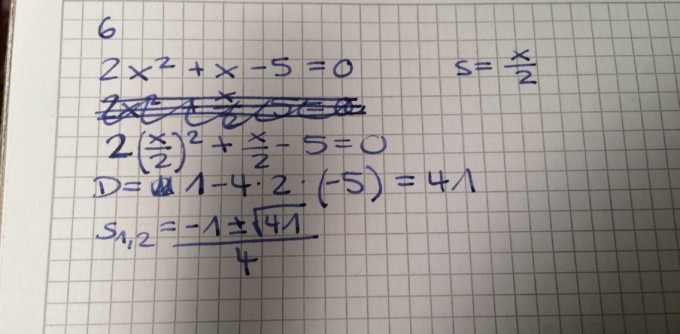 6
2x² + x - 5 = 0
s = x/2
2(x/2)² + x/2 - 5 = 0
D = 1 - 4 · 2 · (-5) = 41
s₁,₂ = (-1 ± √41)/4